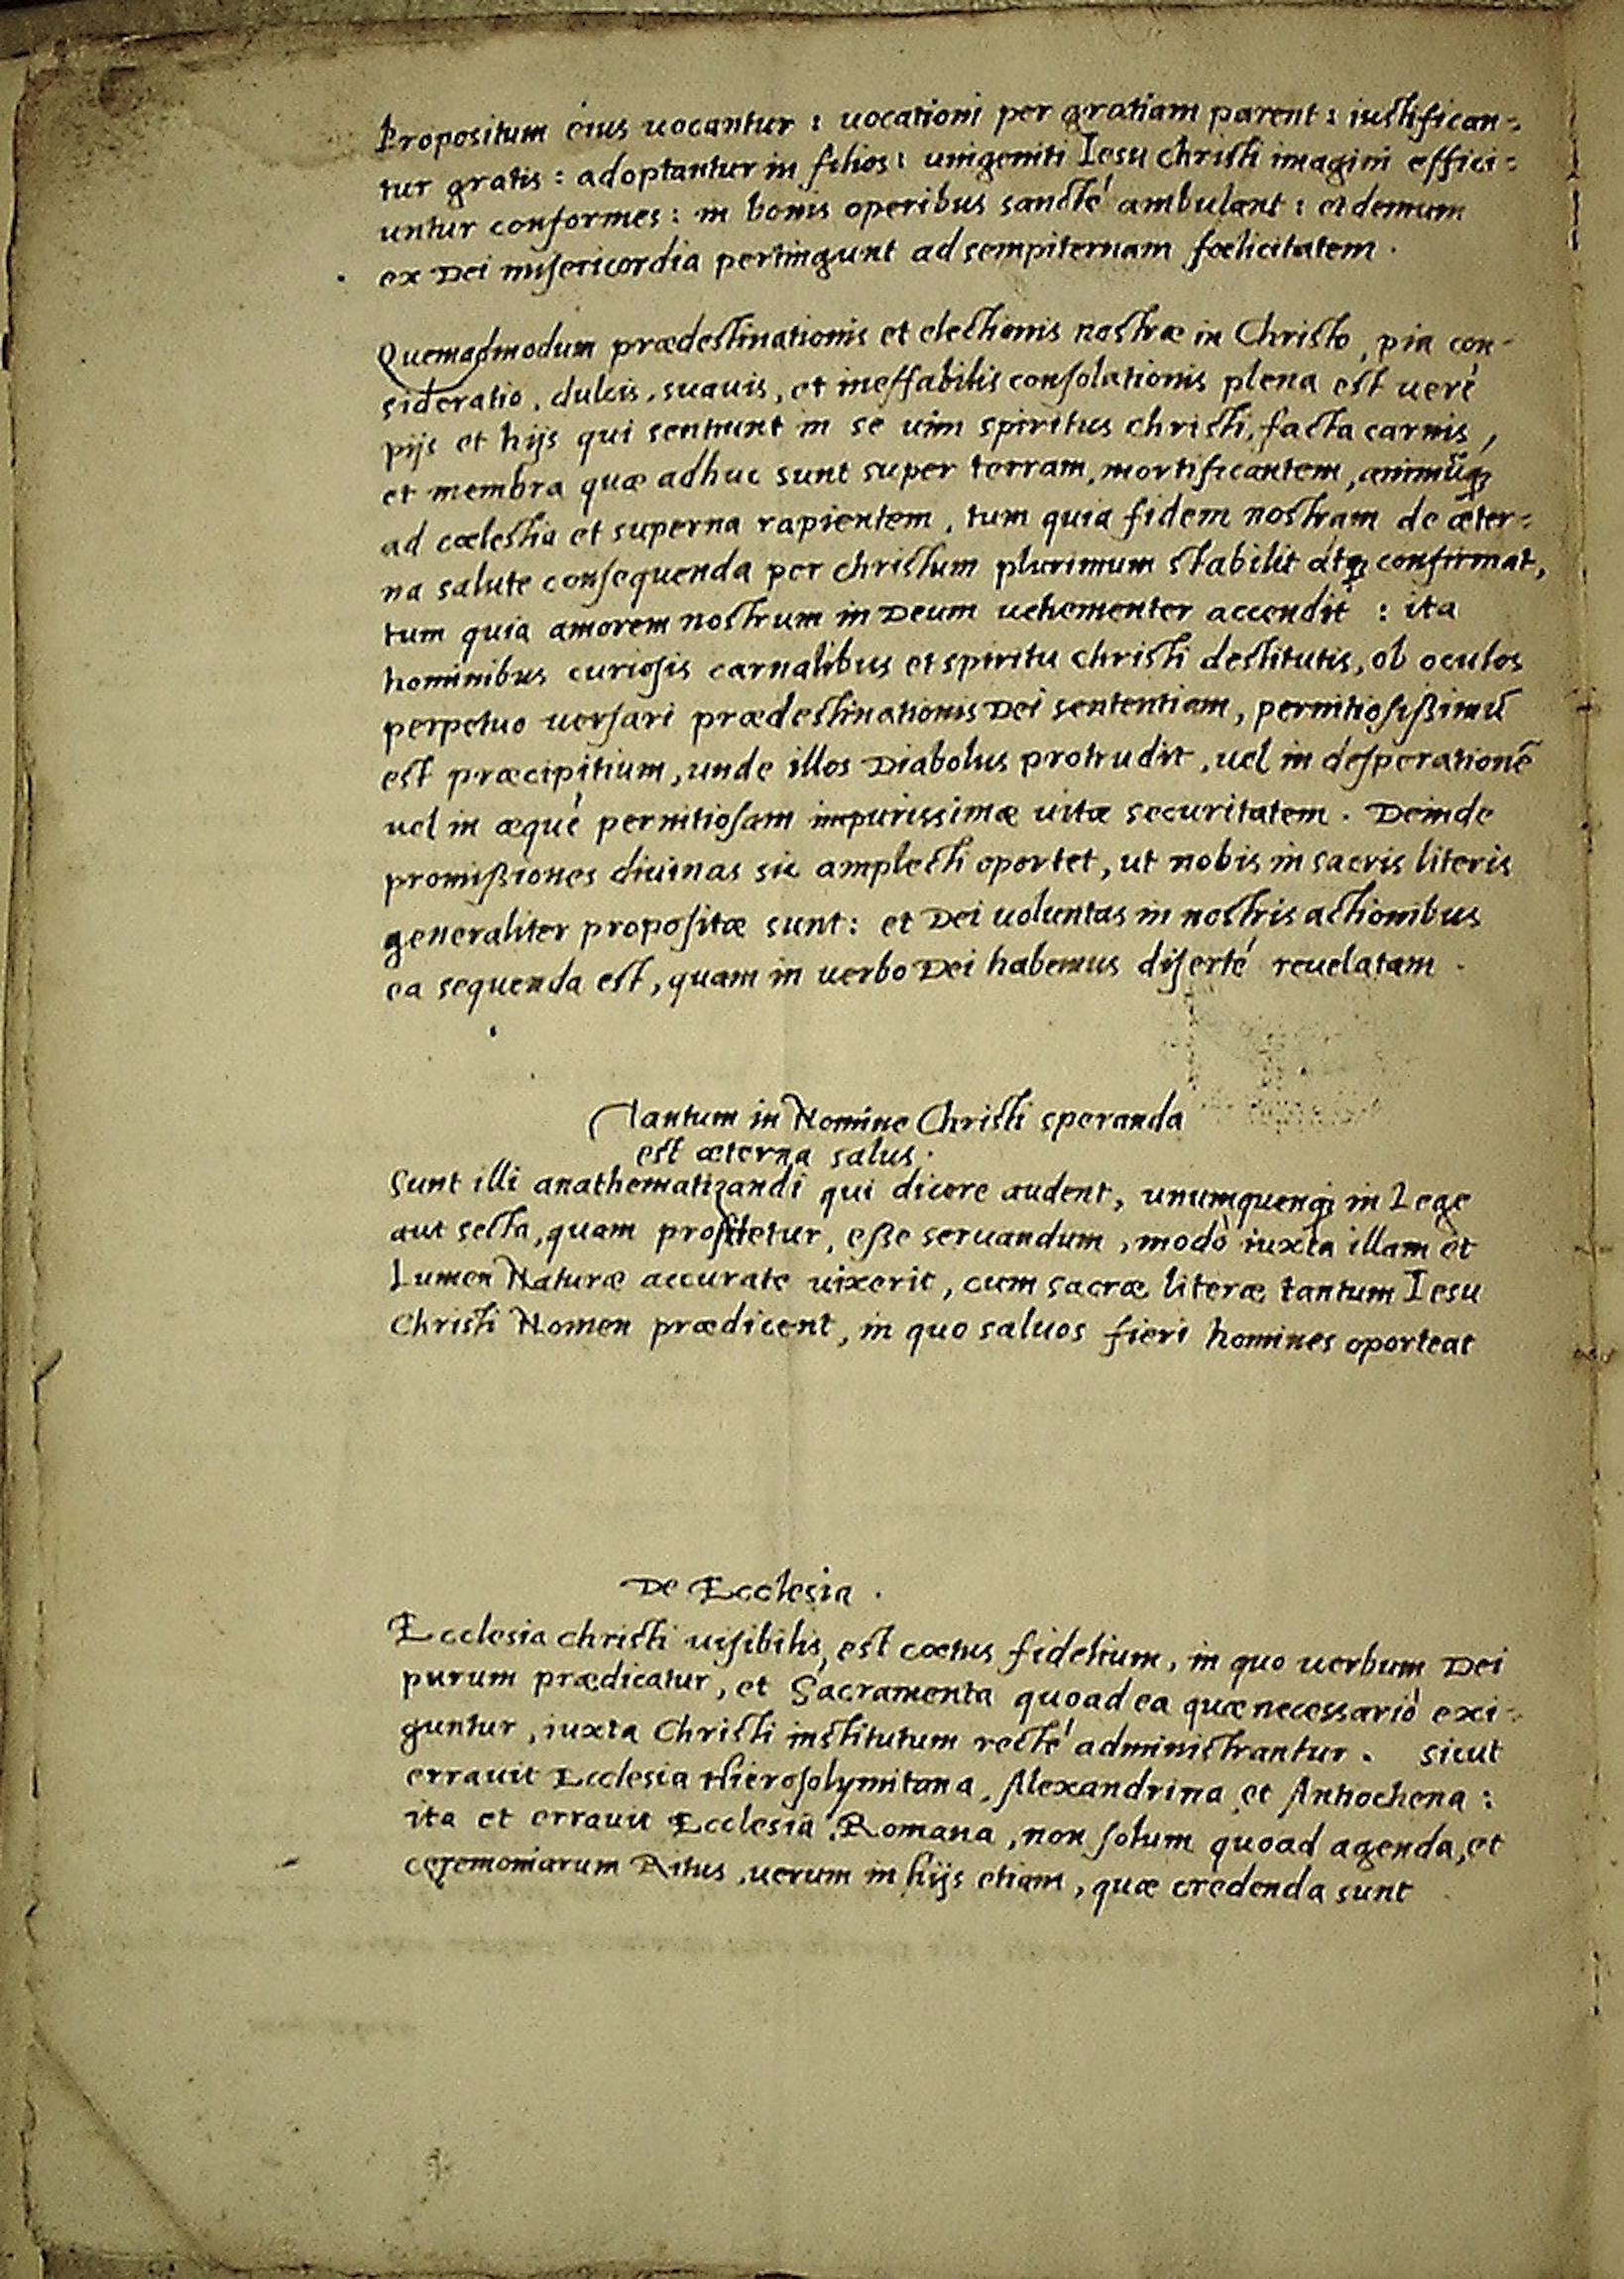 Propositum eius uocantur : uocationi per gratiam parent : iustifican=
tur gratis : adoptantur in filios : unigeniti Iesu Christi imagini effici=
untur conformes : in bonis operibus sancté ambulant : et demum
ex Dei misericordia pertingunt ad sempiternam fœlicitatem .
Quemadmodum prædestinationis et electionis nostræ in Christo , pia con-
sideratio , dulcis , suauis , et ineffabilis consolationis plena est uerè
pijs et hijs qui sentiunt in se uim spiritus christi, facta carnis ,
et membra quæ adhuc sunt super terram, mortificantem , animũq;
ad cœlestia et superna rapientem , tum quia fidem nostram de æter=
na salute consequenda per christum plurimum stabilit atq; confirmat,
tum quia amorem nostrum in Deum uehementer accendit : ita
hominibus curiosis carnalibus et spiritu christi destitutis, ob oculos
perpetuo uersari prædestinationis Dei sententiam , pernitiosißimũ
est præcipitium , unde illos Diabolus protrudit , uel in desperationẽ
uel in æquè pernitiosam impurissimæ uitæ securitatem . Deinde
promißiones diuinas sic amplecti oportet, ut nobis in sacris literis
generaliter propositæ sunt : et Dei uoluntas in nostris actionibus
ea sequenda est , quam in uerbo Dei habemus diserté reuelatam .
Tantum in Nomine Christi speranda
est æterna salus .
Sunt illi anathematizandi qui dicere audent , unumquenq; in Lege
aut secta , quam profitetur , eße seruandum , modò iuxta illam et
Lumen Naturæ accurate uixerit , cum sacræ literæ tantum Iesu
Christi Nomen prædicent , in quo saluos fieri homines oporteat
De Ecclesia .
Ecclesia christi uisibilis, est cœtus fidelium , in quo uerbum Dei
purum prædicatur , et Sacramenta quoad ea quæ necessariò exi=
guntur , iuxta Christi institutum recté administrantur . sicut
errauit Ecclesia Hierosolymitana , Alexandrina et Antiochena :
ita et errauit Ecclesia Romana , non solum quoad agenda, et
ceremoniarum Ritus , uerum in hijs etiam , quæ credenda sunt